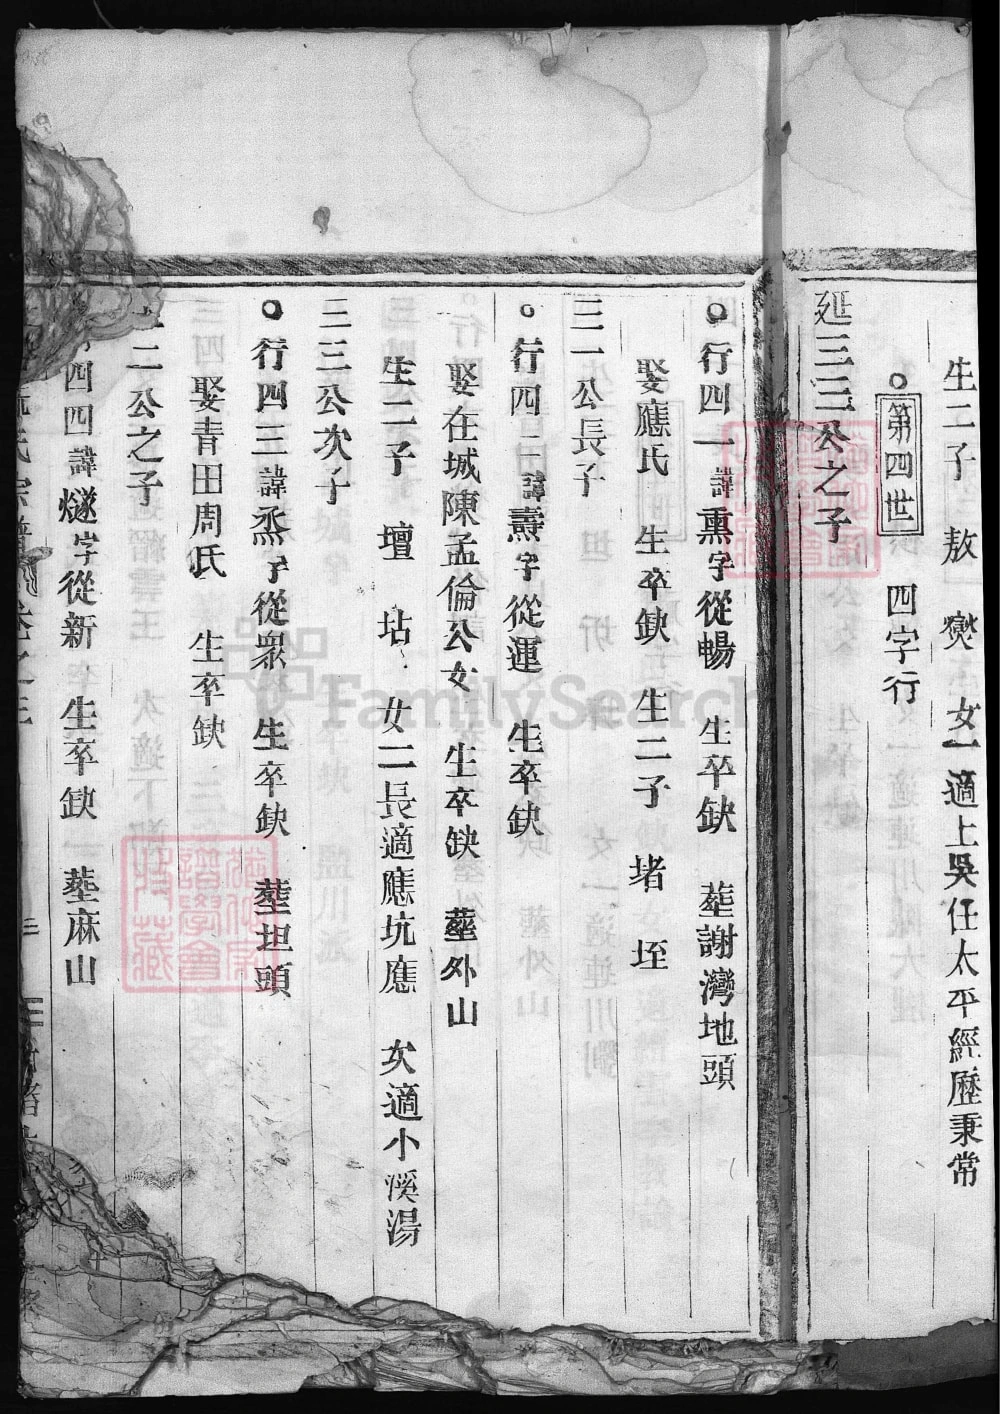 生二子 敖 爕 女一適上吳任太平經歷秉常
第四世 四字行
延三三公之子
行四一諱熏字從暢 生卒缺 塟謝灣地頭
娶應氏 生卒缺 生二子 堵 垤
三一公長子
行四二諱燾字從運 生卒缺
娶在城陳孟倫公女 生卒缺 塟外山
生二子 壇 坫 女二長適應坑應 次適小溪湯
三三公次子
行四三諱烝字從衆 生卒缺 塟坦頭
娶青田周氏 生卒缺
二公之子
四四諱燧字從新 生卒缺 塟麻山
氏宗譜 卷之三
FamilySearch